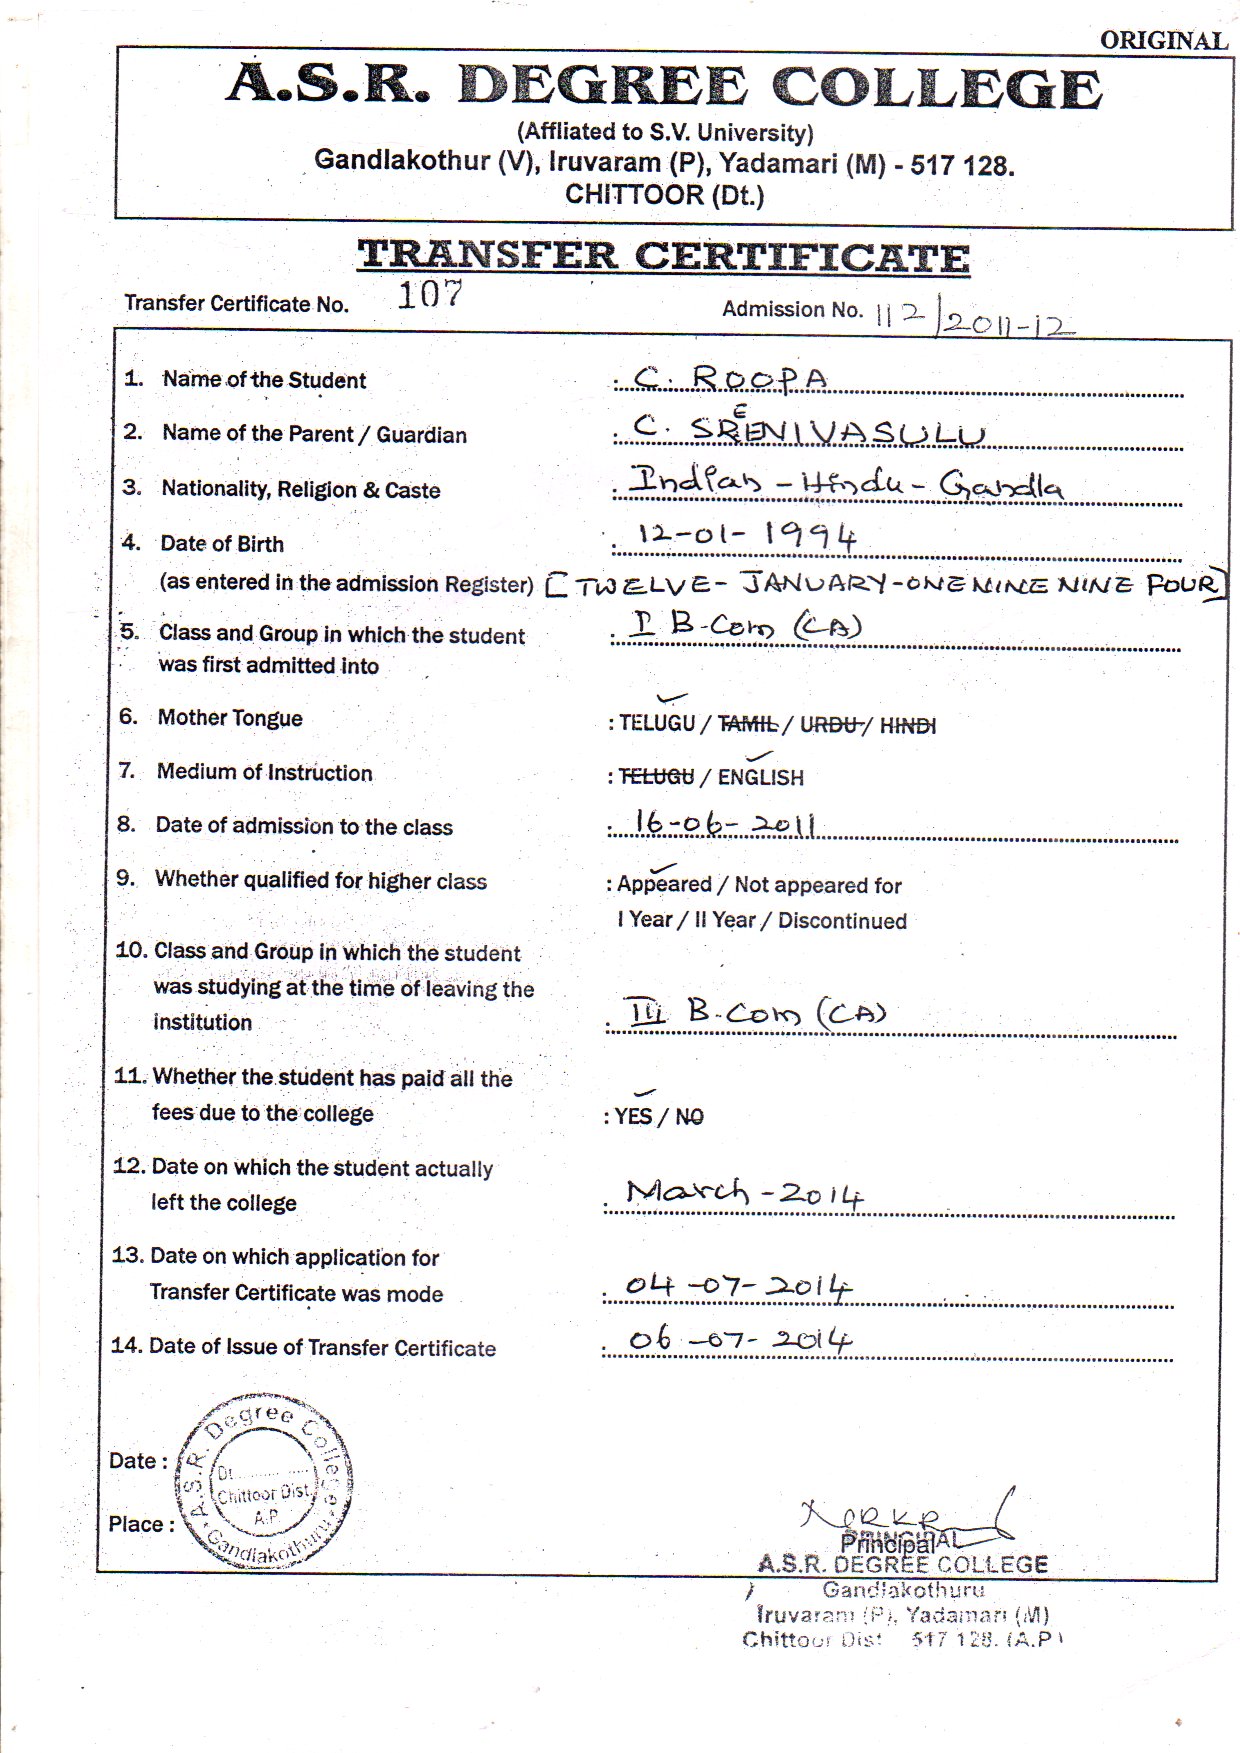 ORIGINAL
A.S.R. DEGREE COLLEGE
(Affliated to S.V. University)
Gandlakothur (V), Iruvaram (P), Yadamari (M) - 517 128.
CHITTOOR (Dt.)
TRANSFER CERTIFICATE
Transfer Certificate No. 107 Admission No. 112/2011-12
1. Name of the Student : C. ROOPA
2. Name of the Parent / Guardian : C. SREENIVASULU
3. Nationality, Religion & Caste : Indian - Hindu - Gandla
4. Date of Birth : 12-01-1994
(as entered in the admission Register) [TWELVE - JANUARY - ONE NINE NINE FOUR]
5. Class and Group in which the student : I B.Com (CA)
was first admitted into
6. Mother Tongue : TELUGU / TAMIL / URDU / HINDI
7. Medium of Instruction : TELUGU / ENGLISH
8. Date of admission to the class : 16-06-2011
9. Whether qualified for higher class : Appeared / Not appeared for
I Year / II Year / Discontinued
10. Class and Group in which the student
was studying at the time of leaving the
institution : III B.Com (CA)
11. Whether the student has paid all the
fees due to the college : YES / NO
12. Date on which the student actually
left the college : March - 2014
13. Date on which application for
Transfer Certificate was mode : 04-07-2014
14. Date of Issue of Transfer Certificate : 06-07-2014
Date :
Place :
A.S.R. Degree College
Dt.
Chittoor Dist.
A.P.
Gandlakothuru
Principal
PRINCIPAL
A.S.R. DEGREE COLLEGE
Gandlakothuru
Iruvaram (P), Yadamari (M)
Chittoor Dist 517 128. (A.P)